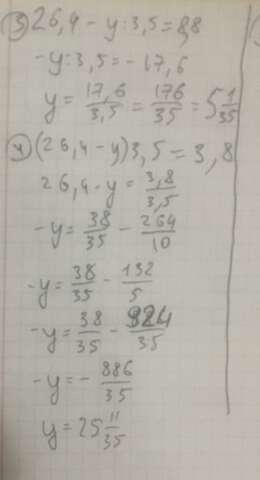 3) 26,4 - y : 3,5 = 8,8
-y : 3,5 = -17,6
y = 17,6/3,5 = 176/35 = 5 1/35
4) (26,4 - y) 3,5 = 3,8
26,4 - y = 3,8/3,5
-y = 38/35 - 264/10
-y = 38/35 - 132/5
-y = 38/35 - 924/35
-y = - 886/35
y = 25 11/35